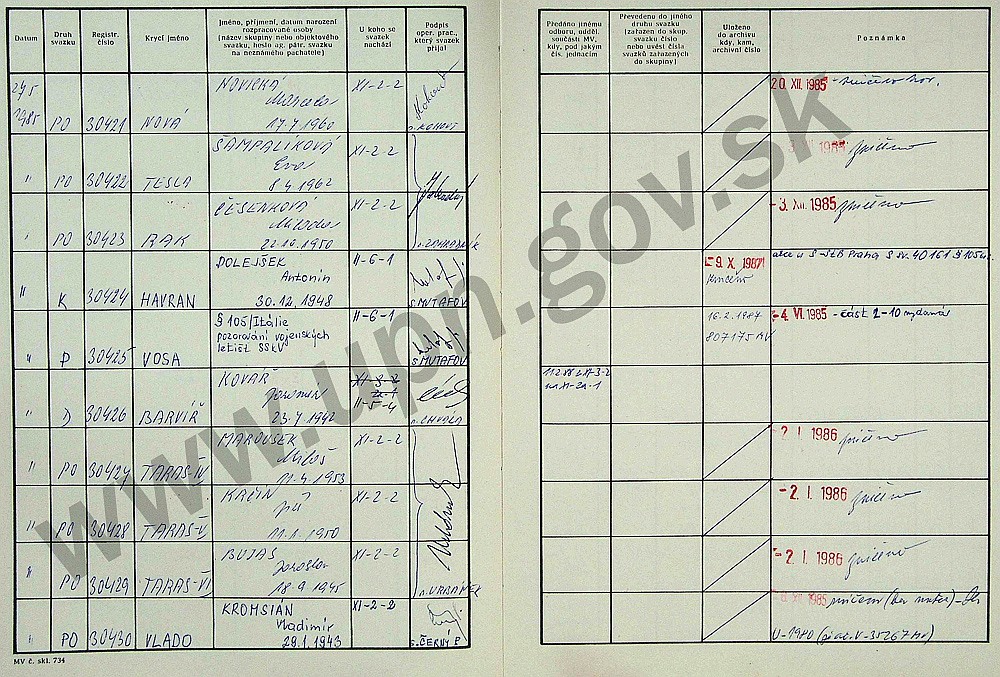 Datum
Druh svazku
Registr. číslo
Krycí jméno
Jméno, příjmení, datum narození
rozpracované osoby
(název skupiny nebo objektového
svazku, heslo ag. pátr. svazku
na neznámého pachatele)
U koho se
svazek
nachází
Podpis
oper. prac.,
který svazek
přijal
Předáno jinému
odboru, odděl.
součásti MV,
kdy, pod jakým
čís. jednacím
Převedeno do jiného
druhu svazku
(zařazen do skup.
svazku číslo
nebo uvést čísla
svazků zařazených
do skupiny)
Uloženo
do archivu
kdy, kam,
archivní číslo
Poznámka
27/5 NOVICKÁ XI-2-2 20. XII. 1985
1985 PO 30421 NOVÁ 17.7.1960 p. KOHOUT
ŠAMPALÍKOVÁ XI-2-2 1985 zničeno
Eva
" PO 30422 TESLA 8.4.1962
ČESENKOVÁ XI-2-2 -3. XII. 1985 zničeno
" PO 30423 RAK 22.10.1950 p. ZAHRADNÍK
DOLEJŠEK II-6-1 -9. X. 1987
Antonín zničeno
" K 30424 HAVRAN 30.12.1948 S MUTAFOV
§ 105/Itálie II-6-1 -4. VI. 1985 - část 2-10 vydána
pozorování vojenských 16.2.1987
letišť SSkV 807175 MV
" P 30425 VOSA S MUTAFOV
KOVÁŘ XI-3-2
Jaromír II-5-4
" D 30426 BARVÍŘ 23.7.1942 p. CHVÁLA
MAROUŠEK XI-2-2 -2. I. 1986 zničeno
Miloš
" PO 30427 TARAS-IV 11.4.1953
KRČÍN XI-2-2 -2. I. 1986 zničeno
Jiří
" PO 30428 TARAS-V 11.1.1950
BUJAŠ XI-2-2 -2. I. 1986 zničeno
Jaroslav
" PO 30429 TARAS-VI 18.9.1945 p. URBÁNEK
KROMSIÁN XI-2-2 1985 zničeno
Vladimír
" PO 30430 VLADO 29.1.1943 S. ČERNÝ P.
MV č. skl. 734
www.upn.gov.sk